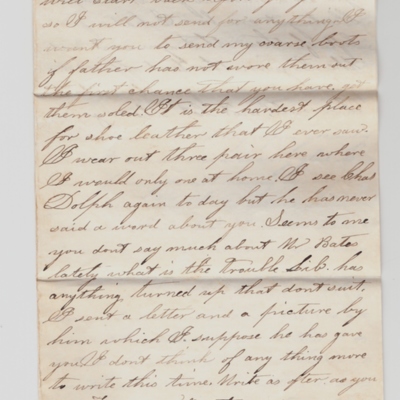 so I will not send for anything. I
want you to send my coarse boots
if father has not wore them out
the first chance that you have, get
them soled. It is the hardest place
for shoe leather that I ever saw.
I wear out three pair here where
I would only one at home. I see Chas
Dolph again to day but he has never
said a word about you. Seems to me
you dont say much about W Bates
lately what is the trouble Sib. has
anything turned up that dont suit.
I sent a letter and a picture by
him which I suppose he has gave
you I dont think of any thing more
to write this time. Write as ofter as you